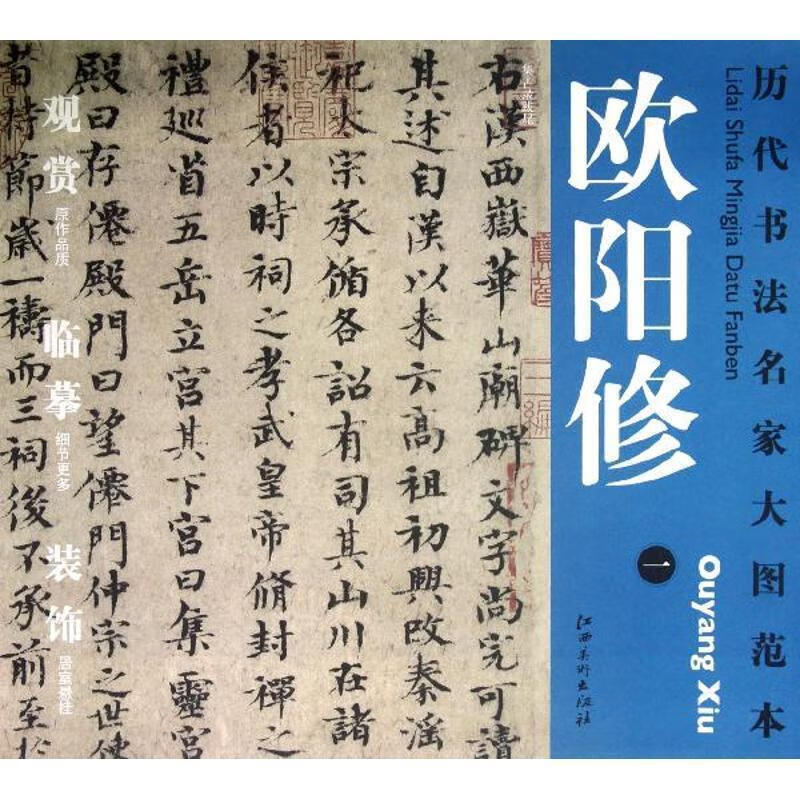 历代书法名家大图范本
Lidai Shufa Mingjia Datu Fanben
欧阳修
一
Ouyang Xiu
江西美術出版社
集古录跋尾
右漢西嶽華山廟碑文字尚完可讀
其述自漢以來云高祖初興改秦淫
祀太宗承循各詔有司其山川在諸
侯者以時祠之孝武皇帝脩封禪之
禮巡省五岳立宮其下宮曰集靈宮
殿曰存僊殿門曰望僊門仲宗之世使
者持節歲一禱而三祠後不承前至於
观赏
原作品质
临摹
细节更多
装饰
居室悬挂